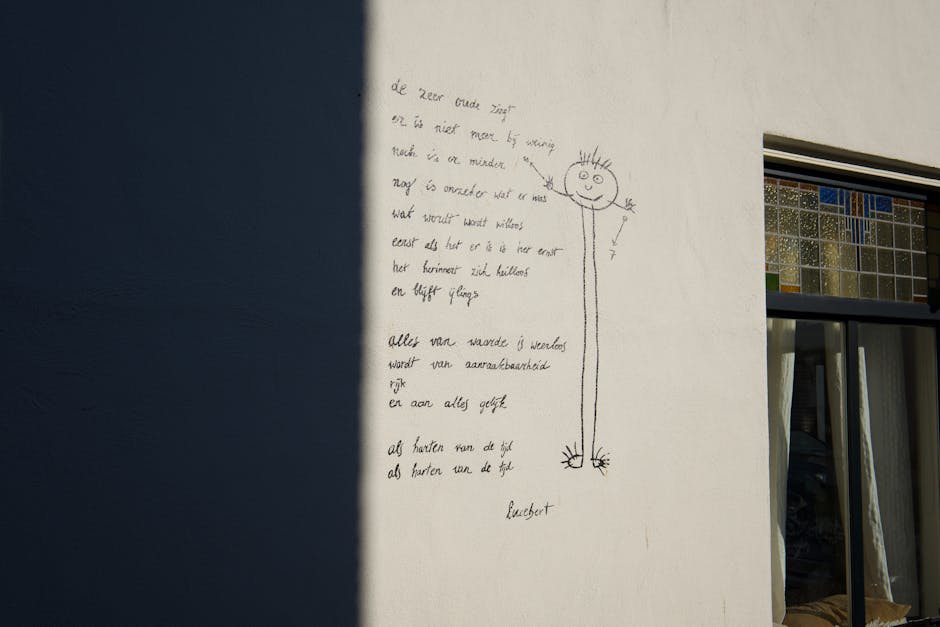 de zeer oude zingt
er is niet meer bij weinig
noch is er minder
nog is onzeker wat er was
wat wordt wordt willoos
eerst als het er is is het ernst
het herinnert zich heilloos
en blijft ijlings
alles van waarde is weerloos
wordt van aanraakbaarheid
rijk
en aan alles gelijk
als harten van de tijd
als harten van de tijd
Lucebert